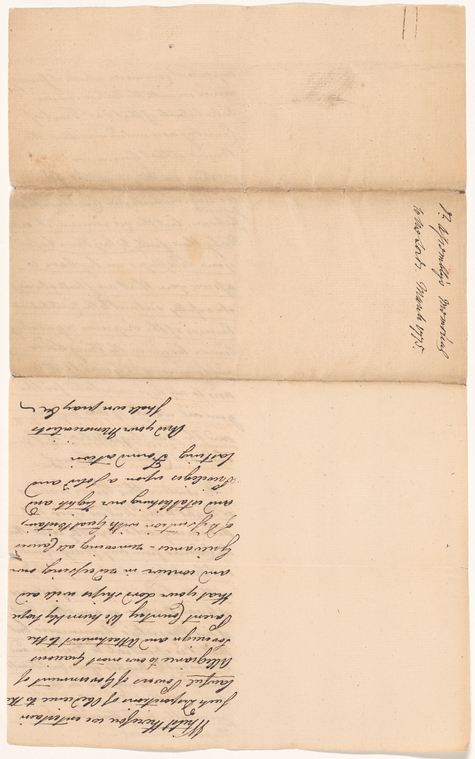 Whilst therefore we entertain
such dispositions of Obedience to the
lawful Powers of Government of
Allegiance to our most Gracious
Sovereign and Attachment to the
Parent Country We humbly hope
that your Lordships will aid
and concur in redressing our
Grievances - removing all Causes
of Dissention with Great Britain
and establishing our Rights and
Privileges upon a solid and
lasting Foundation
And your Memorialists
shall ever pray &c
Assembly's Memorial
to the Lords. March 1775.